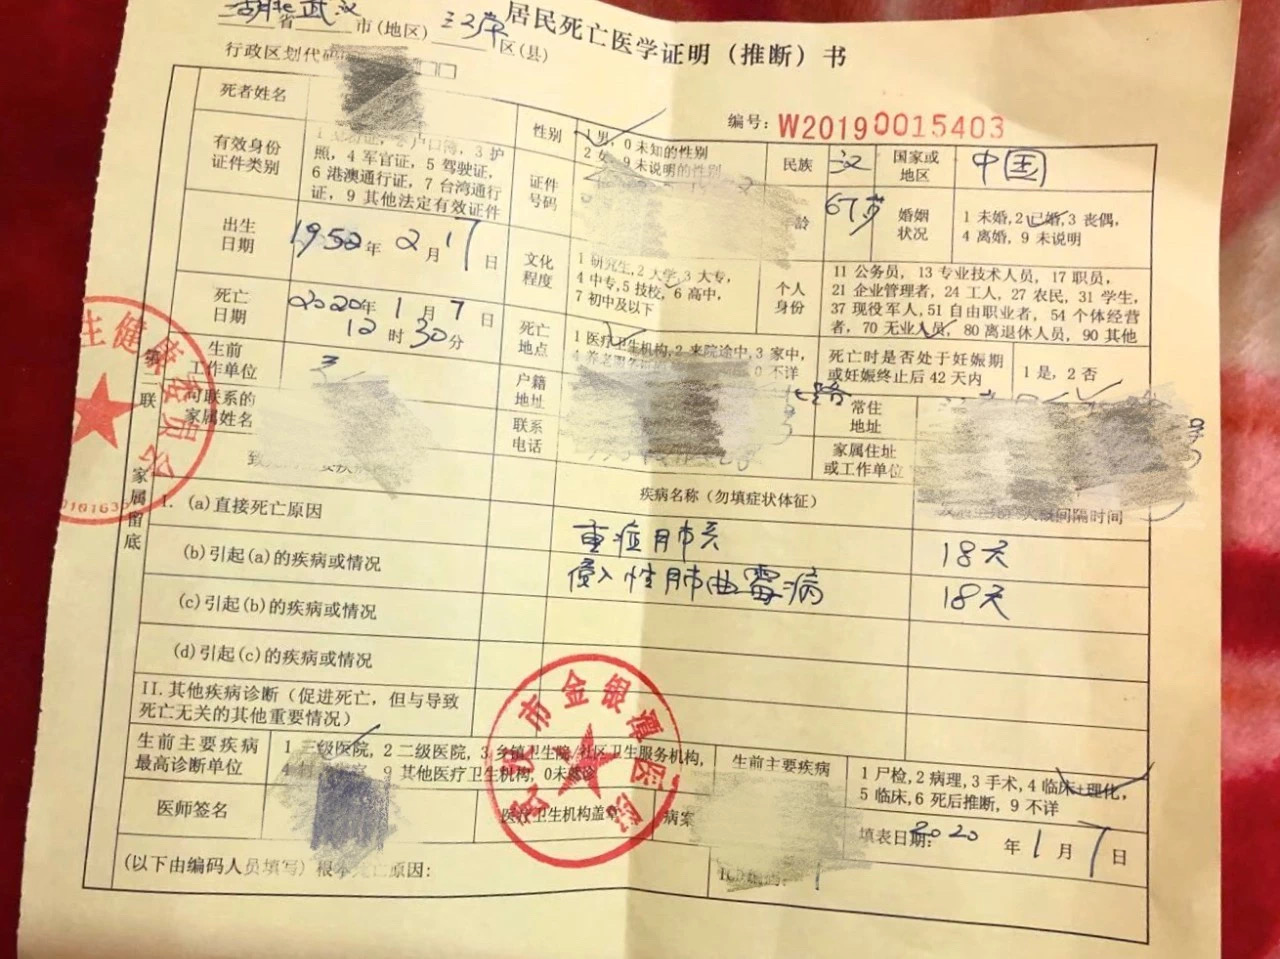 湖北省武汉市(地区)江岸区(县)
居民死亡医学证明（推断）书
行政区划代码
编号：W20190015403
死者姓名
性别
1 男，0 未知的性别
2 女，9 未说明的性别
民族
汉
国家或地区
中国
有效身份证件类别
照，4 军官证，5 驾驶证，
6 港澳通行证，7 台湾通行
证，9 其他法定有效证件
证件号码
年龄
67岁
婚姻状况
1 未婚,2 已婚,3 丧偶,
4 离婚，9 未说明
出生日期
1952年2月17日
文化程度
1 研究生,2 大学,3 大专,
4 中专,5 技校，6 高中,
7 初中及以下
个人身份
11 公务员，13 专业技术人员，17 职员，
21 企业管理者，24 工人，27 农民，31 学生，
37 现役军人,51 自由职业者，54 个体经营
者，70 无业人员，80 离退休人员，90 其他
死亡日期
2020年1月7日
12时30分
死亡地点
1 医疗卫生机构,2 来院途中,3 家中,
4 养老服务 0 不详
死亡时是否处于妊娠期
或妊娠终止后 42 天内
1 是，2 否
生前工作单位
无
户籍地址
路
常住地址
可联系的家属姓名
联系电话
家属住址或工作单位
第
联
家属留底
疾病名称（勿填症状体征）
间隔时间
I. (a)直接死亡原因
重症肺炎
18天
(b)引起(a)的疾病或情况
侵入性肺曲霉病
18天
(c)引起(b)的疾病或情况
(d)引起(c)的疾病或情况
II.其他疾病诊断（促进死亡，但与导致
死亡无关的其他重要情况）
生前主要疾病
最高诊断单位
1 三级医院，2 二级医院，3 乡镇卫生院/社区卫生服务机构，
9 其他医疗卫生机构，0未就诊
生前主要疾病
1 尸检,2 病理,3 手术,4 临床+理化,
5 临床,6 死后推断，9 不详
医师签名
医疗卫生机构盖章
市金银潭医院
病案
填表日期：2020年1月7日
(以下由编码人员填写）根本死亡原因：
生健康委员会